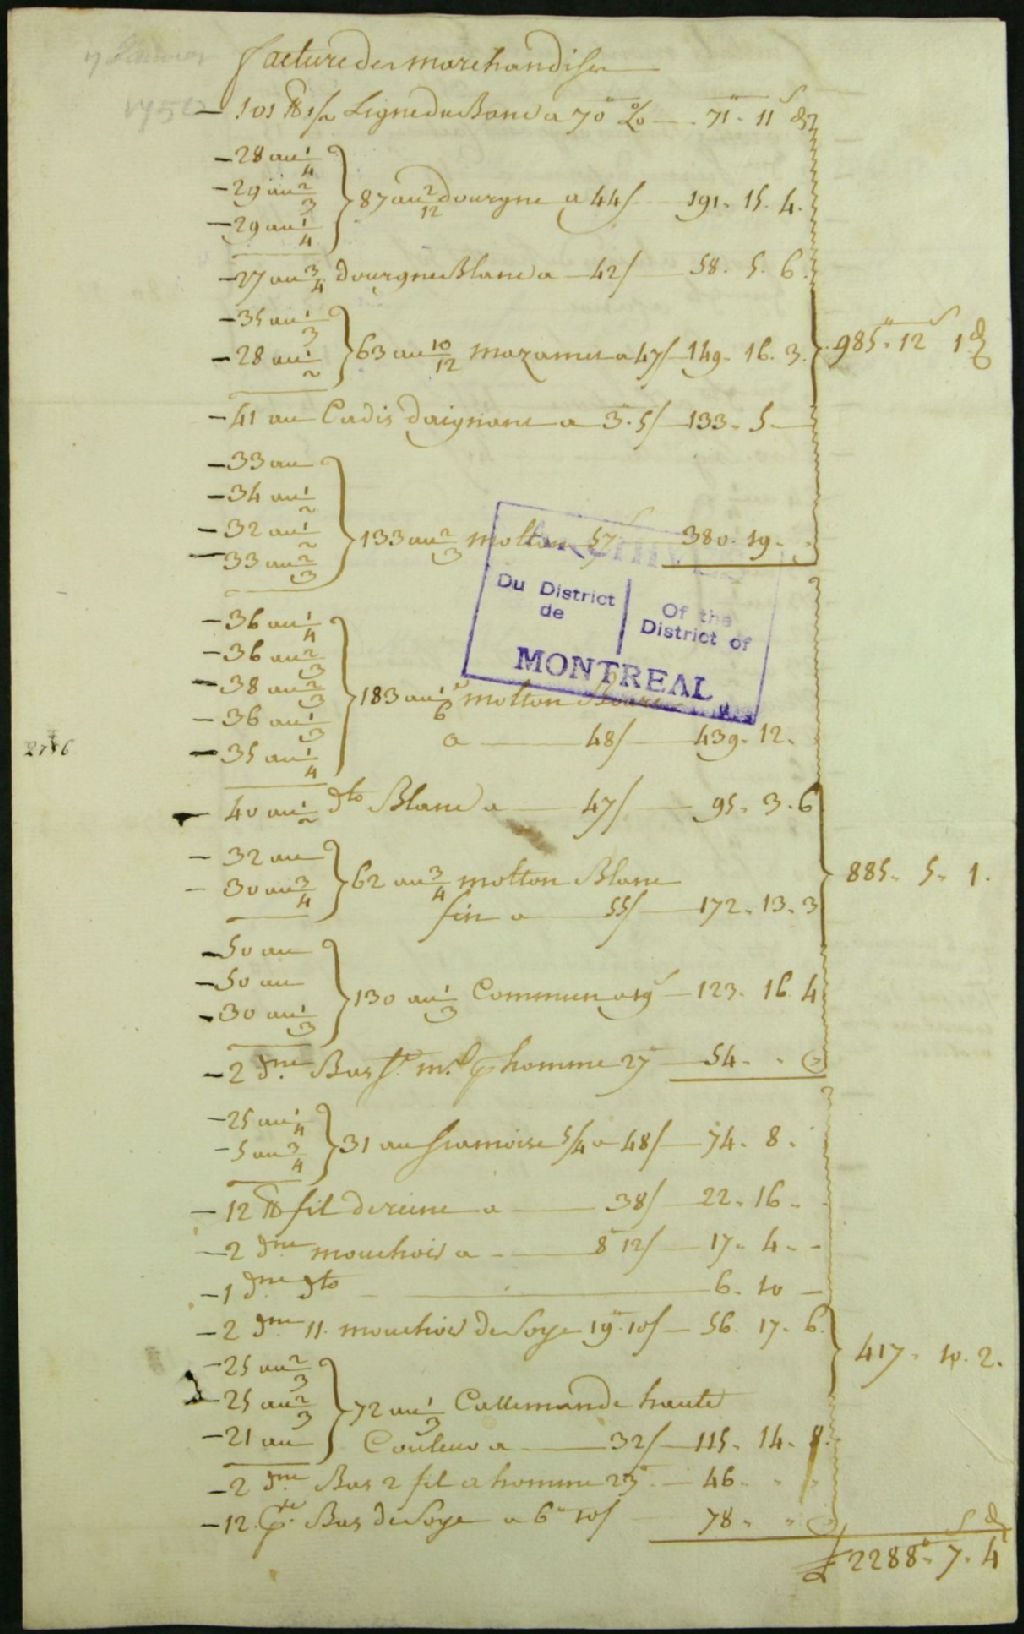 17 Janvier
1752
facture des marchandises
101 lb 1/2 Ligne de Banc a 70" % 71" 11 s d
28 au 1/4
29 au 2/3
29 au 1/4
87 au 2/12 dourgne a 44/ 191. 15. 4.
27 au 3/4 dourgne Blanc a 42/ 58. 5. 6.
35 au 1/3
28 au 1/2
63 au 10/12 mazamet a 47/ 149. 16. 3.
985" 12 s 1 d
41 au Cadis daignant a 3. 5/ 133. 5.
33 au
34 au 1/2
32 au 1/2
33 au 2/3
133 au 2/3 molton 57 s 380. 19.
Du District de
Of the District of
MONTREAL
36 au 1/4
36 au 2/3
38 au 2/3
36 au 1/3
35 au 1/4
183 au 1/6 molton
a 48/ 439. 12.
2776
40 au 1/2 dto Blanc a 47/ 95. 3. 6
32 au
30 au 3/4
62 au 3/4 molton Blanc
fin a 55/ 172. 13. 3
885. 5. 1.
50 au
50 au
30 au 1/3
130 au 1/3 Commun a 19 s 123. 16. 4
2 dne Bas homme 27" 54.
25 au 1/4
5 au 3/4
31 au siamoise 5/4 a 48/ 74. 8.
12 lb fil de reine a 38/ 22. 16
2 dne mouchois a 8" 12/ 17. 4.
1 dne dto 6. 10
2 dne 11. mouchois de Soye 19" 10/ 56. 17. 6.
25 au 2/3
25 au 2/3
21 au
72 au 1/3 Callemande haute
Couleur a 32/ 115. 14. 8.
417. 10. 2.
2 dne Bas 2 fil a homme 23" 46.
12 pre Bas de Soye a 6" 10/ 78.
£ 2288" 7 s 4 d